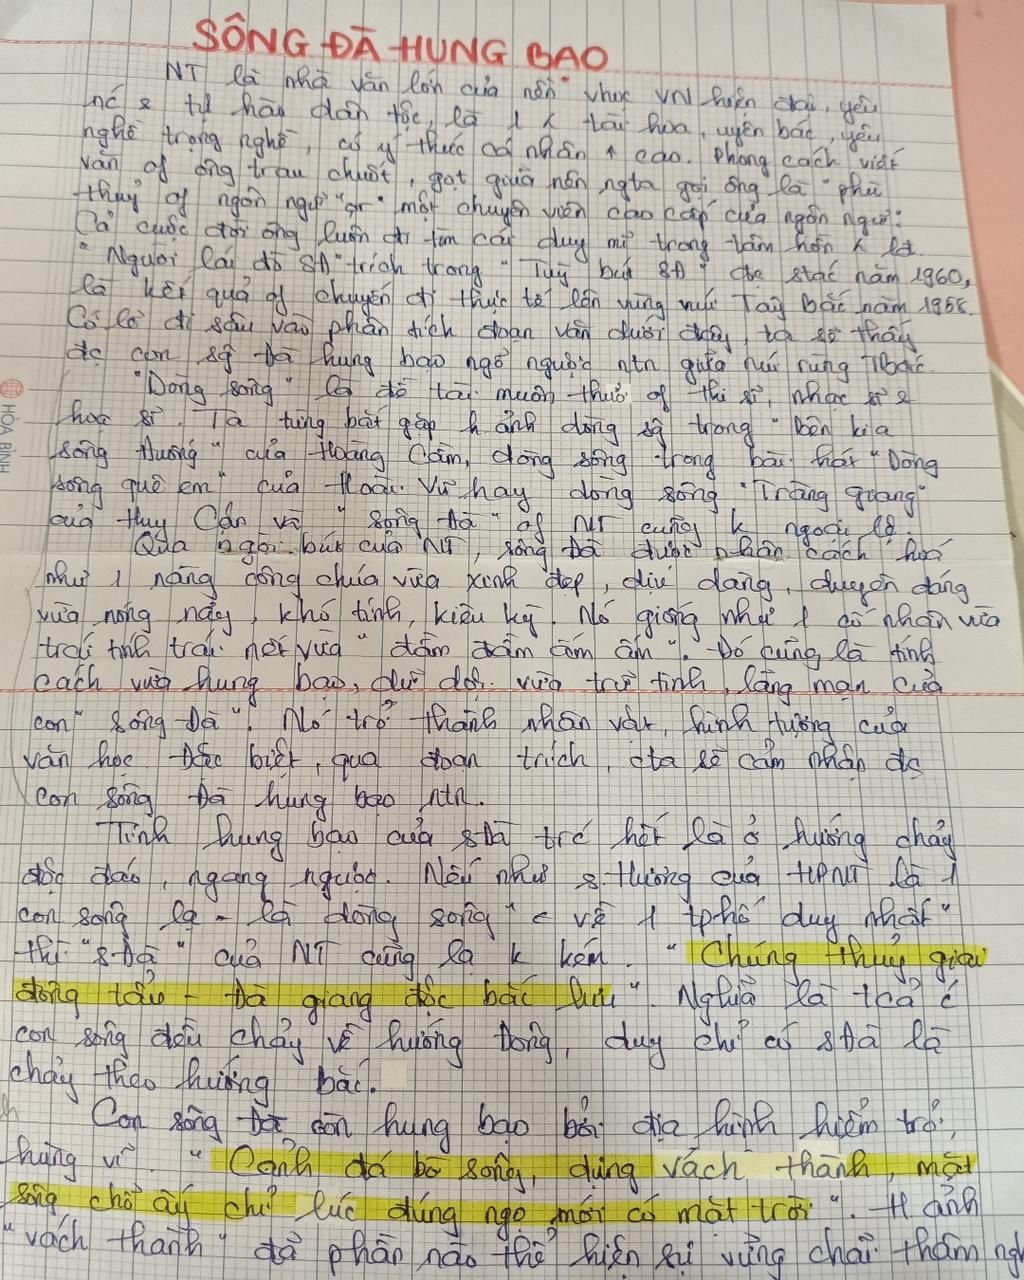 SÔNG ĐÀ HUNG BẠO
NT là nhà văn lớn của nền vhọc VN hiện đại, yêu
nc & tự hào dân tộc, là 1 x tài hoa, uyên bác, yêu
nghề trọng nghề, có ý thức cá nhân ↑ cao. Phong cách viết
văn of ông trau chuốt, gọt giũa nên ngta gọi ông là "phù
thuỷ of ngôn ngữ" or "một chuyên viên cao cấp của ngôn ngữ".
Cả cuộc đời ông luôn đi tìm cái duy mĩ trong tâm hồn x lđ.
"Người lái đò SĐ" trích trong "Tuỳ bút SĐ" đc stác năm 1960,
là kết quả of chuyến đi thực tế lên vùng núi Tây Bắc năm 1958.
Có lẽ đi sâu vào phân tích đoạn văn dưới đây, ta sẽ thấy
đc con sg Đà hung bạo ngỗ ngược ntn giữa núi rừng TBắc.
"Dòng sông" là đề tài muôn thuở of thi sĩ, nhạc sĩ &
hoạ sĩ. Ta từng bắt gặp h ảnh dòng sg trong "Bên kia
sông Đuống" của Hoàng Cầm, dòng sông trong bài hát "Dòng
sông quê em" của Hoài Vũ hay dòng sông "Tràng giang"
của Huy Cận và "sông Đà" of NT cũng k ngoại lệ.
Qua ngòi bút của NT, sông Đà được nhân cách hoá
như 1 nàng công chúa vừa xinh đẹp, dịu dàng, duyên dáng
vừa nóng nảy, khó tính, kiêu kỳ. Nó giống như 1 cố nhân vừa
trái tính trái nết vừa "đằm đằm ấm ấm". Đó cũng là tính
cách vừa hung bạo, dữ dội vừa trữ tình, lãng mạn của
con "sông Đà". Nó trở thành nhân vật, hình tượng của
văn học. Đặc biệt, qua đoạn trích, cta sẽ cảm nhận đc
con sông Đà hung bạo ntn.
Tính hung bạo của sĐà trc hết là ở hướng chảy
độc đáo, ngang ngược. Nếu như s.Hương của HPNT là 1
con sông lạ - là dòng sông "c về 1 tphố duy nhất"
thì "sĐà" của NT cũng lạ k kém. "Chúng thuỷ giai
đông tẩu - Đà giang độc bắc lưu". Nghĩa là tcả c
con sông đều chảy về hướng Đông, duy chỉ có sĐà là
chảy theo hướng bắc.
Con sông Đà còn hung bạo bởi địa hình hiểm trở,
hùng vĩ. "Cảnh đá bờ sông, dựng vách thành, mặt
sông chỗ ấy chỉ lúc đúng ngọ mới có mặt trời". H.ảnh
"vách thành" đã phần nào thể hiện sự vững chãi thâm ngh
HÒA BÌNH